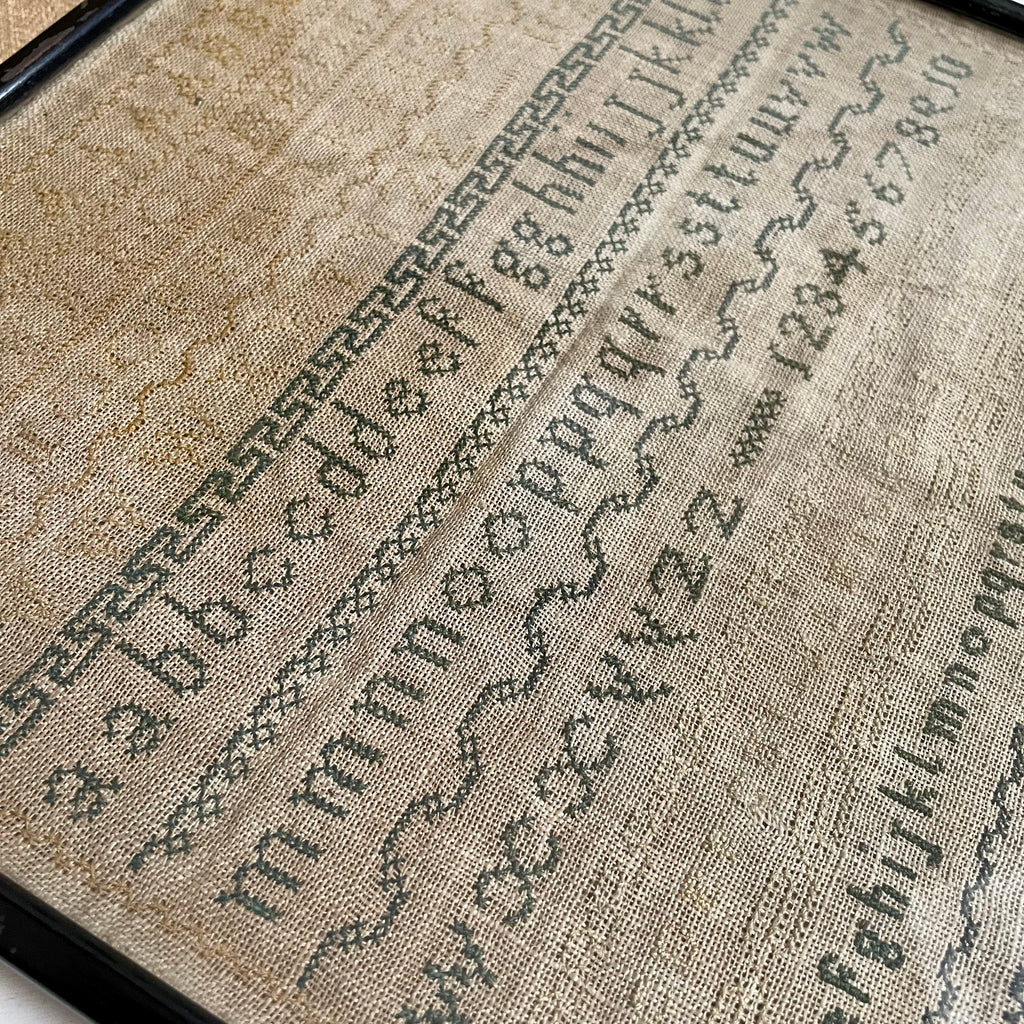 a a b b c c d d e e f f g g h h i i j j k k l
m m n n o o p p q q r r s s t t u u v v w
w x x y y z z 1 2 3 4 5 6 7 8 9 10
e f g h i j k l m n o p q r s t u